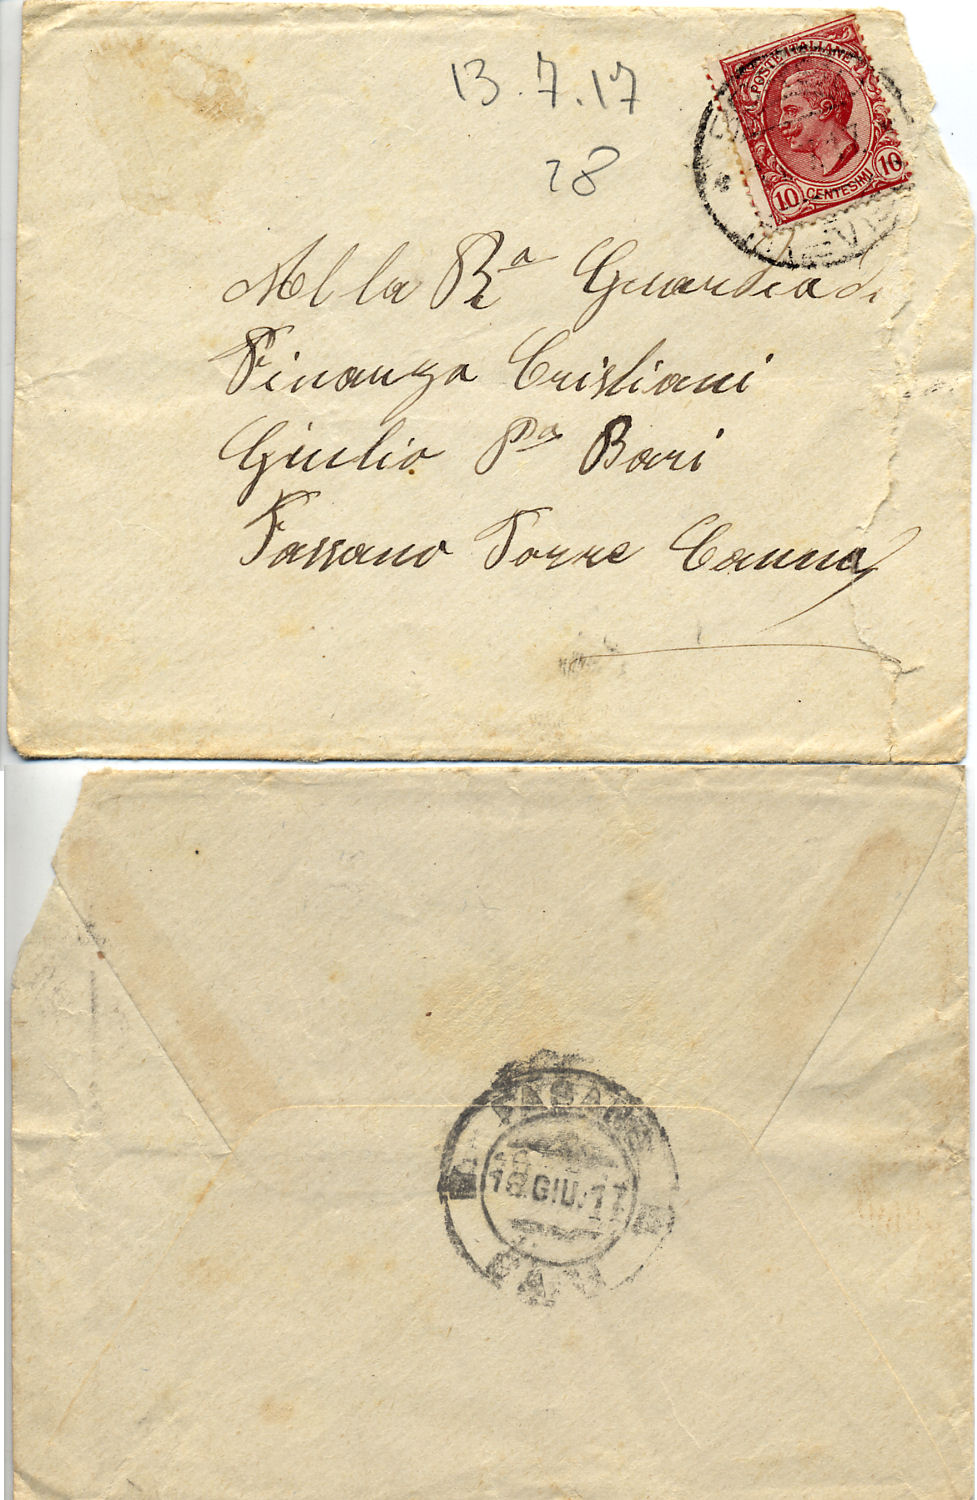 13.7.17
28
POSTE ITALIANE
10 CENTESIMI 10
Alla Ra Guardia di
Finanza Cristiani
Giulio Pa Bari
Fassano Torre Canna
FASANO
18.GIU.17
BARI